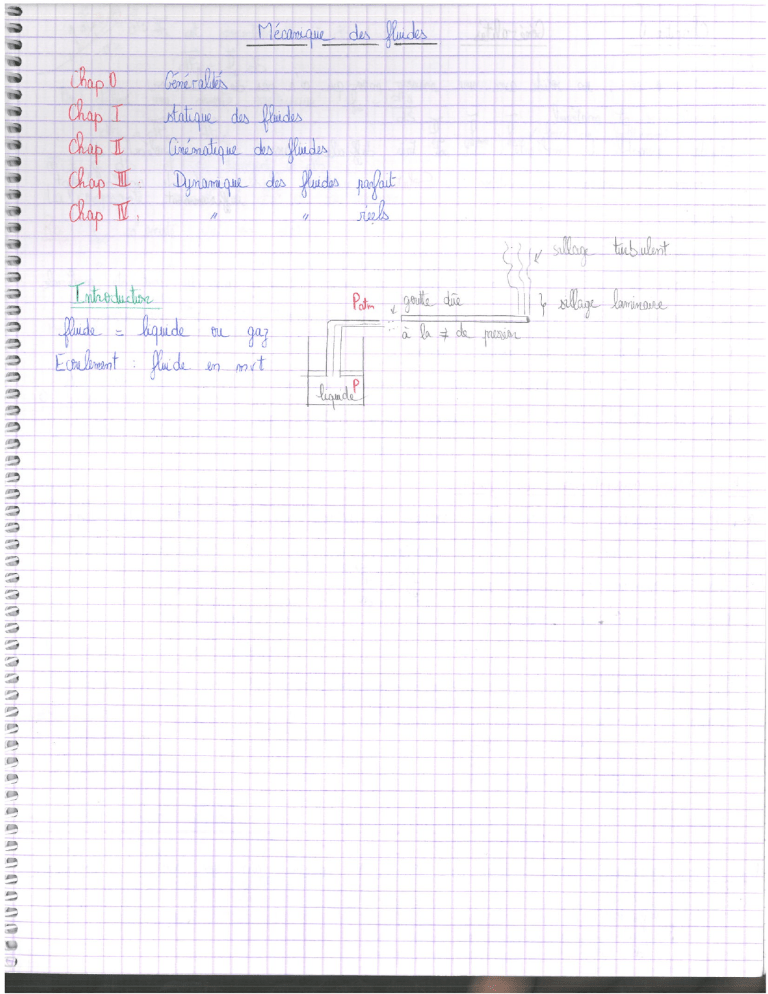 Mécanique des fluides
Chap 0 Généralités
Chap I statique des fluides
Chap II Cinématique des fluides
Chap III. Dynamique des fluides parfait
Chap IV. " " réels
sillage turbulent
Introduction
Patm
goutte dûe
↳ sillage laminaire
fluide = liquide ou gaz
à la ≠ de pression
Ecoulement : fluide en mvt
P
liquide